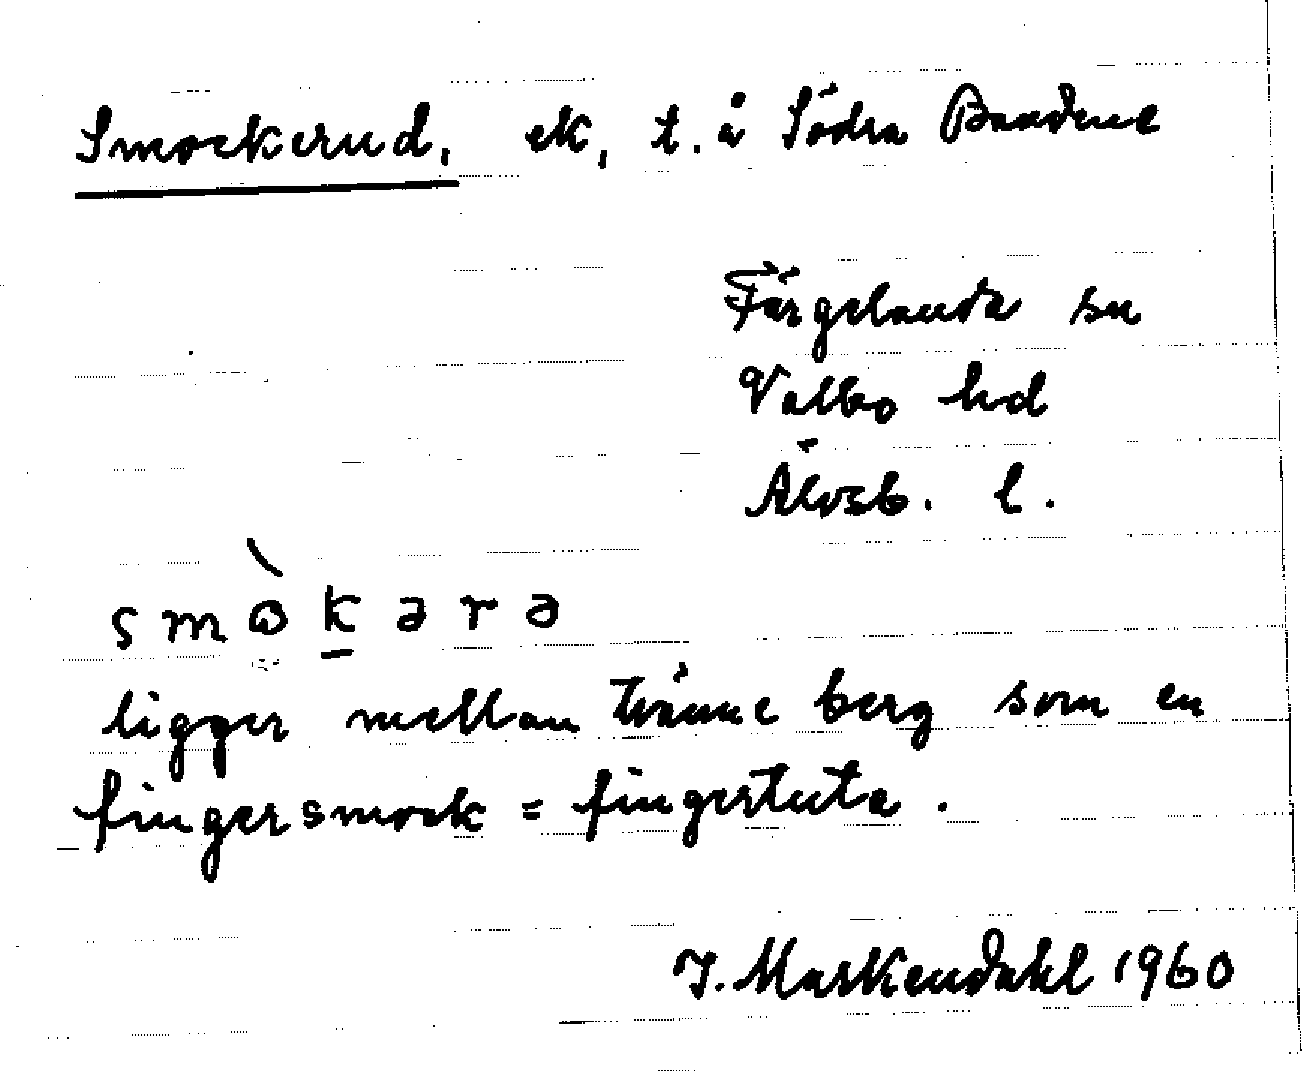 Smockerud, ek, t. å Södra Brandene
Färgelanda sn
Valbo hd
Älvsb. l.
smòkərə
ligger mellan tvänne berg som en
fingersmock = fingertuta.
J. Markendahl 1960